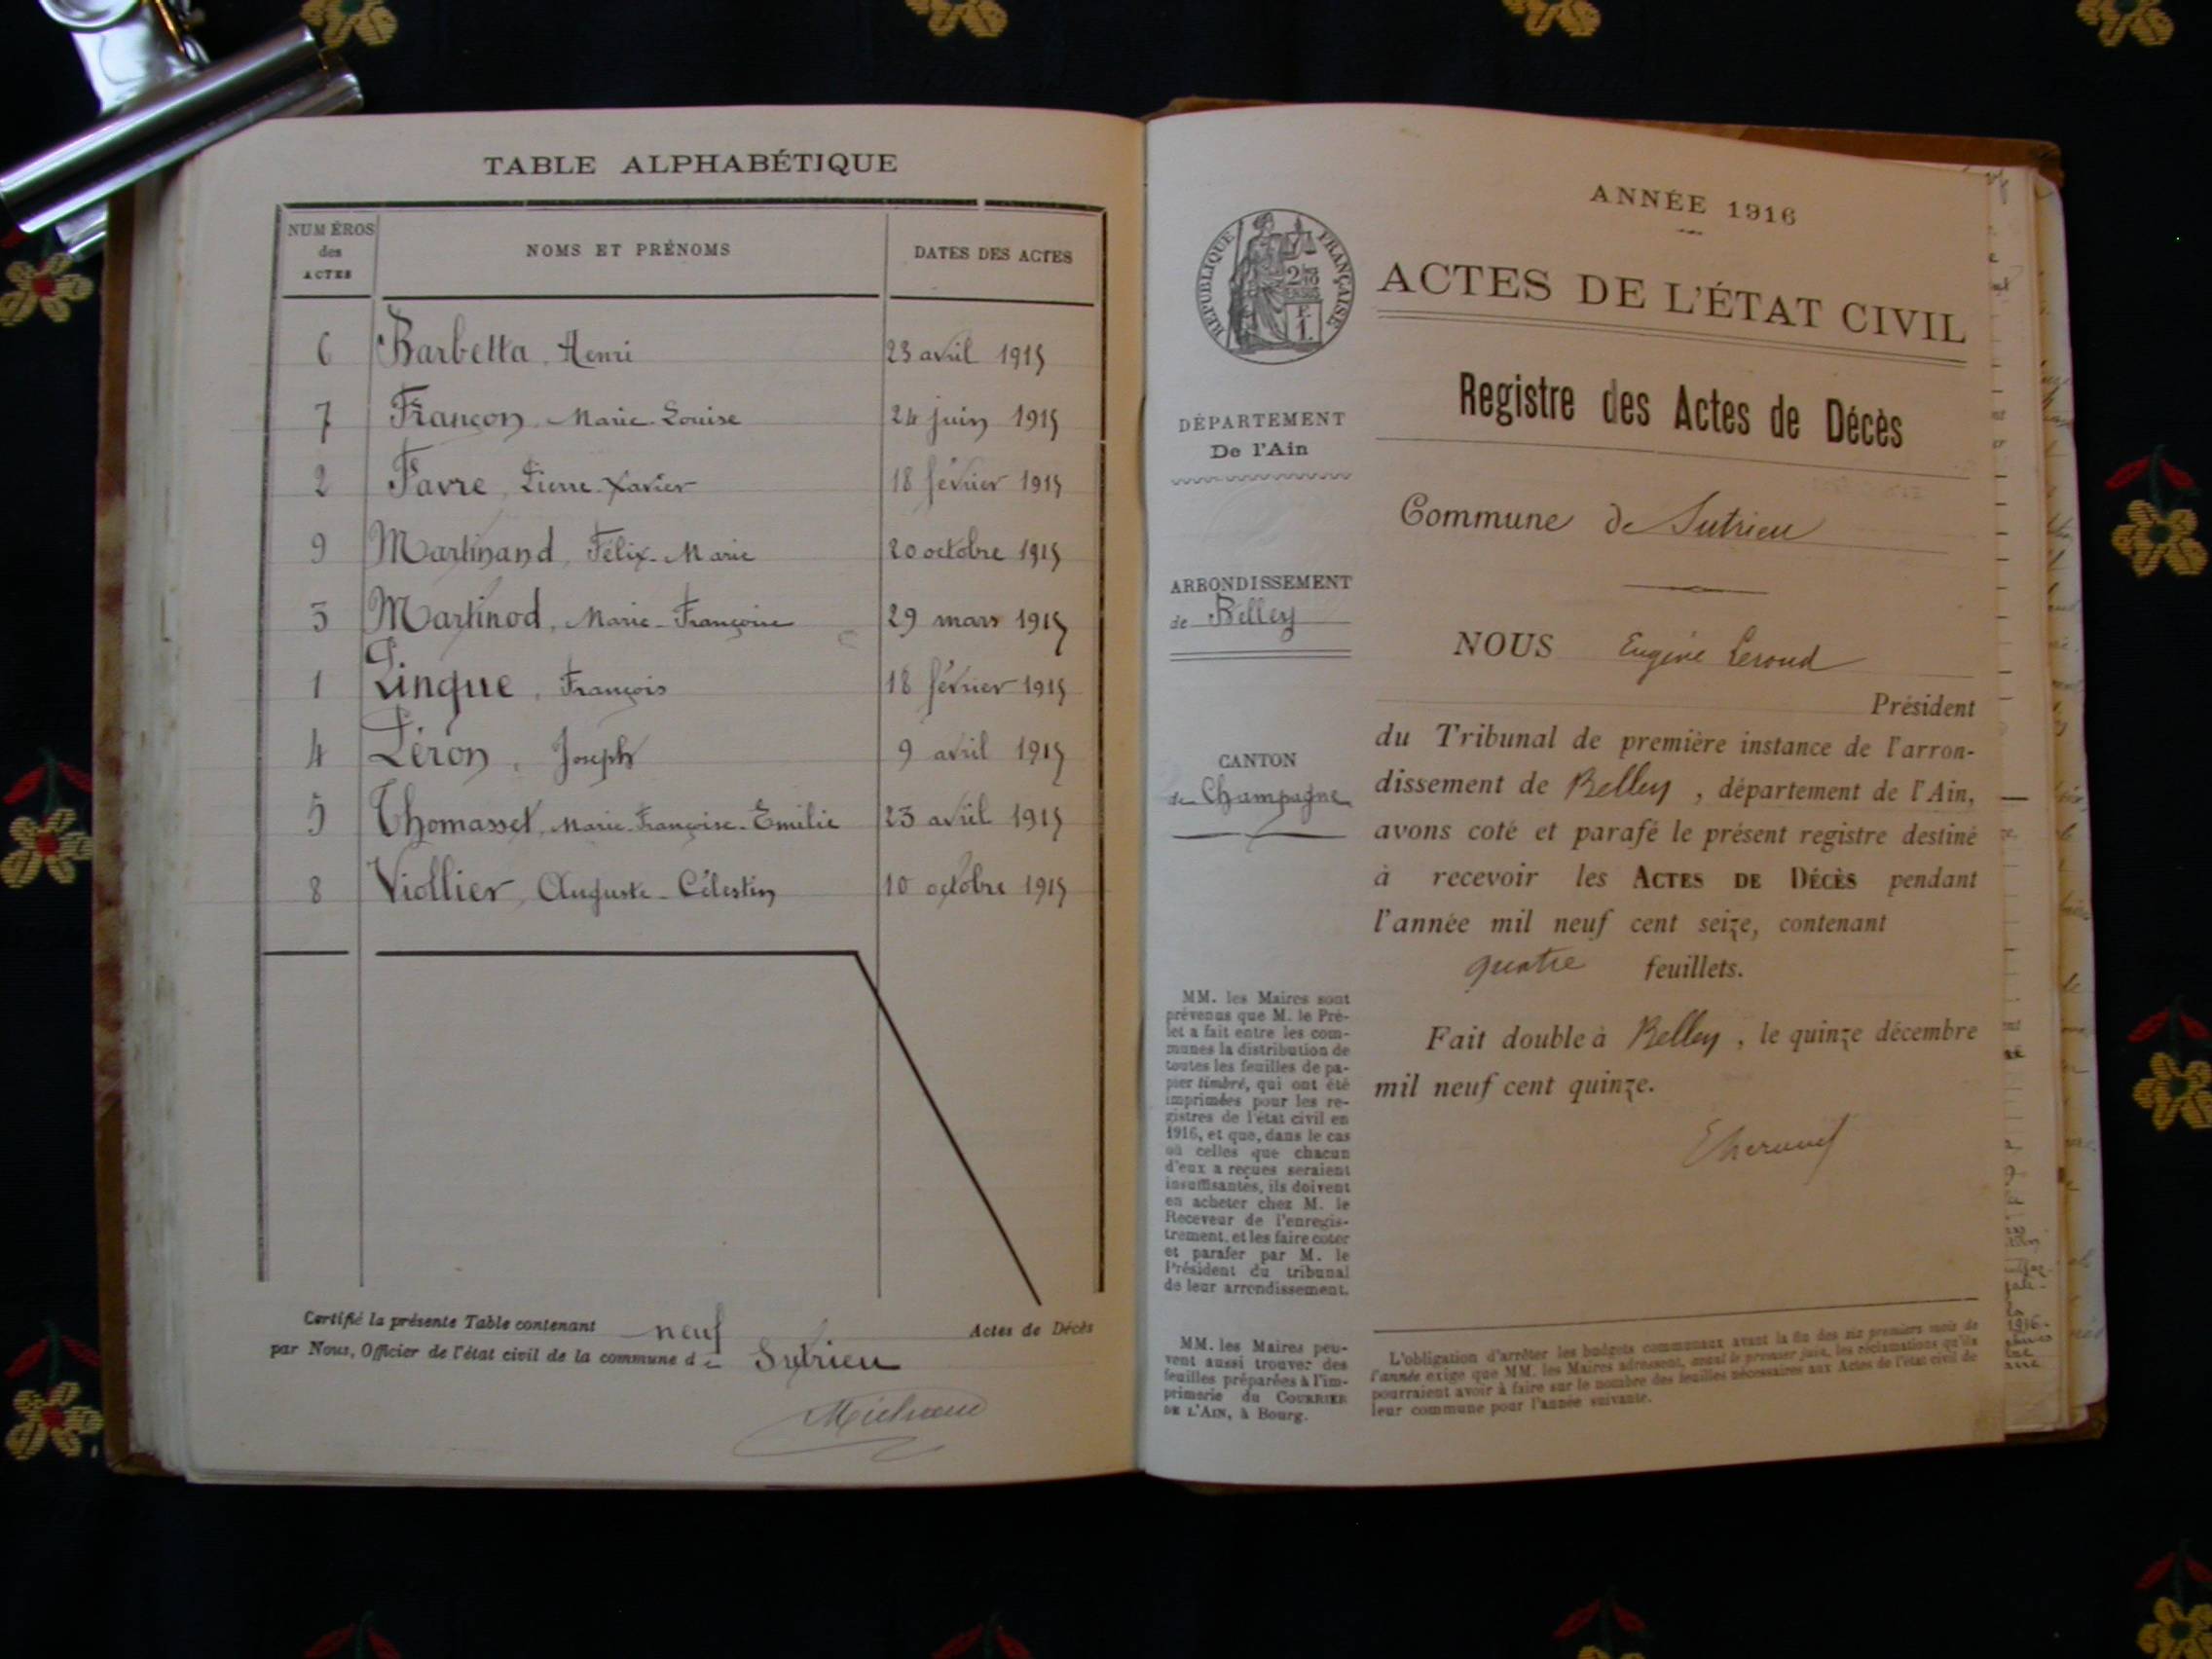 TABLE ALPHABÉTIQUE
NUMÉROS
des
ACTES
NOMS ET PRÉNOMS
DATES DES ACTES
6 Barbetta, Henri 23 avril 1915
7 Françon, Marie-Louise 24 juin 1915
2 Favre, Pierre-Xavier 18 février 1915
9 Martinand, Félix-Marie 20 octobre 1915
3 Martinod, Marie-Françoise 29 mars 1915
1 Pinque, François 18 février 1915
4 Péron, Joseph 9 avril 1915
5 Thomasset, Marie-Françoise-Emilie 23 avril 1915
8 Viollier, Auguste-Célestin 10 octobre 1915
Certifié la présente Table contenant neuf Actes de Décès
par Nous, Officier de l'état civil de la commune de Sutrieu
ANNÉE 1916
RÉPUBLIQUE FRANÇAISE
ACTES DE L'ÉTAT CIVIL
Registre des Actes de Décès
DÉPARTEMENT
De l'Ain
Commune de Sutrieu
ARRONDISSEMENT
de Belley
CANTON
de Champagne
NOUS Eugène
Président
du Tribunal de première instance de l'arron-
dissement de Belley, département de l'Ain,
avons coté et parafé le présent registre destiné
à recevoir les ACTES DE DÉCÈS pendant
l'année mil neuf cent seize, contenant
quatre feuillets.
Fait double à Belley, le quinze décembre
mil neuf cent quinze.
MM. les Maires sont
prévenus que M. le Pré-
fet a fait entre les com-
munes la distribution de
toutes les feuilles de pa-
pier timbré, qui ont été
imprimées pour les re-
gistres de l'état civil en
1916, et que, dans le cas
où celles que chacun
d'eux a reçues seraient
insuffisantes, ils doivent
en acheter chez M. le
Receveur de l'enregis-
trement, et les faire coter
et parafer par M. le
Président du tribunal
de leur arrondissement.
MM. les Maires peu-
vent aussi trouver des
feuilles préparées à l'im-
primerie du COURRIER
DE L'AIN, à Bourg.
L'obligation d'arrêter les budgets communaux avant la fin des six premiers mois de
l'année exige que MM. les Maires adressent, avant le premier juin, les réclamations qu'ils
pourraient avoir à faire sur le nombre des feuilles nécessaires aux Actes de l'état civil de
leur commune pour l'année suivante.